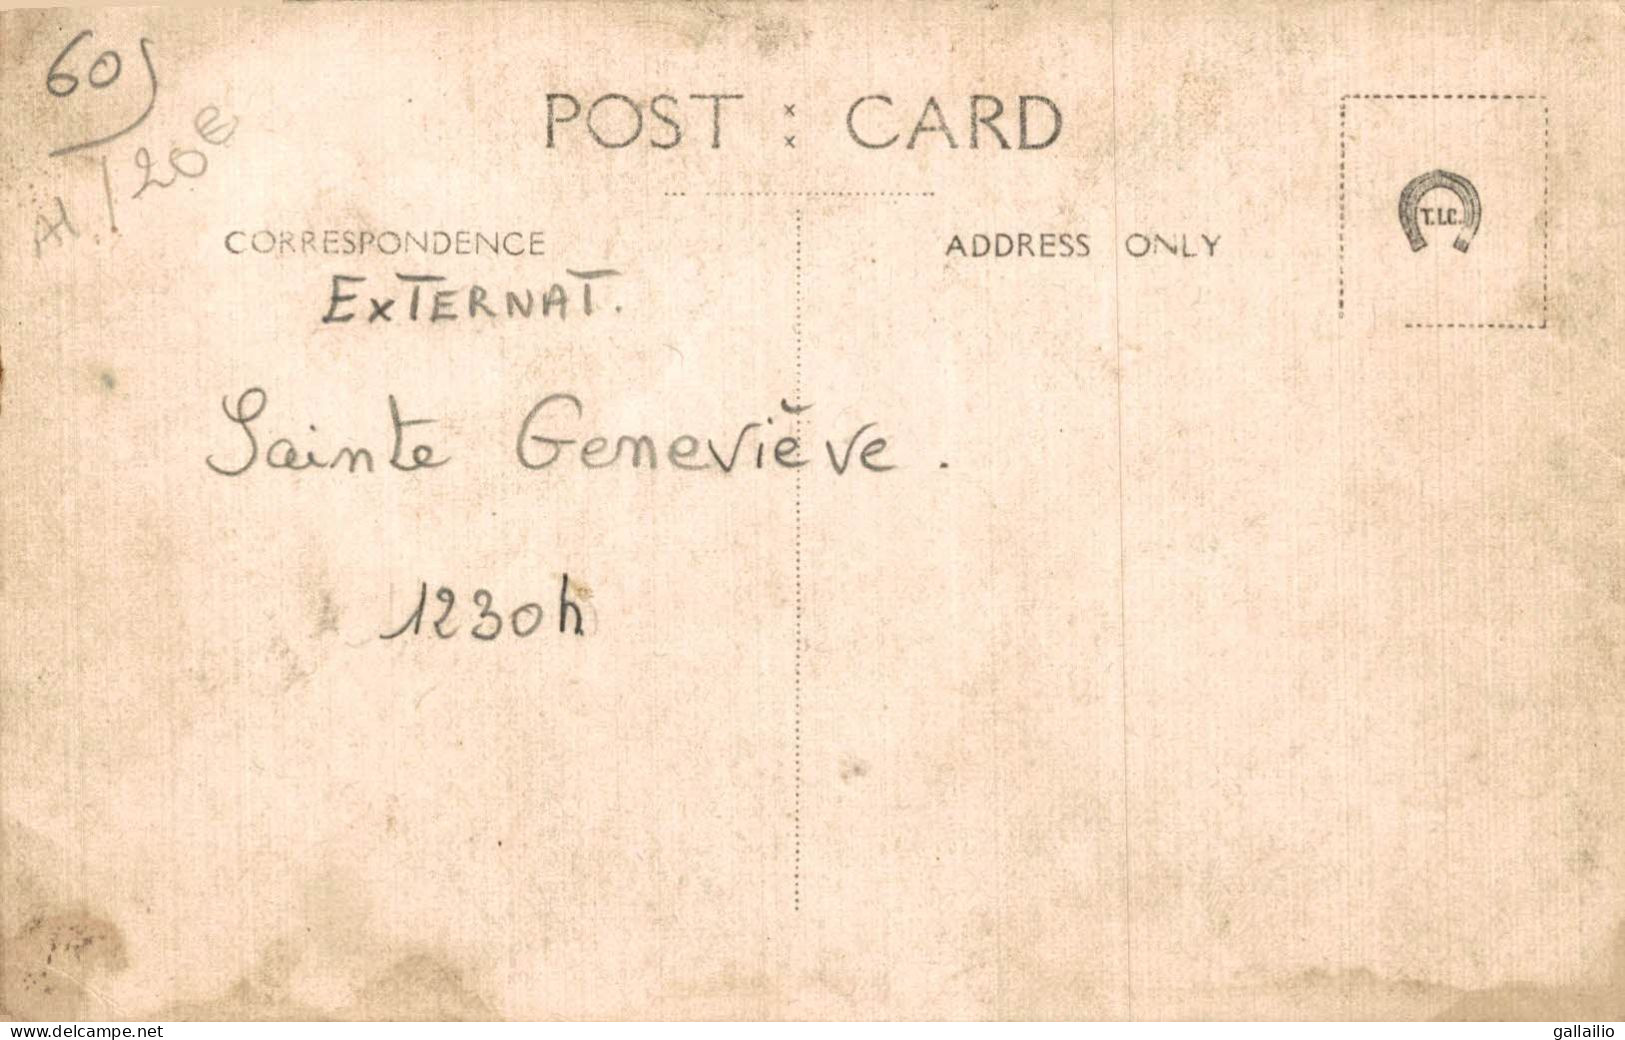 60
A1/20€
POST CARD
CORRESPONDENCE
ADDRESS ONLY
T.I.C.
EXTERNAT.
Sainte Geneviève.
1230h
www.delcampe.net
gallailio